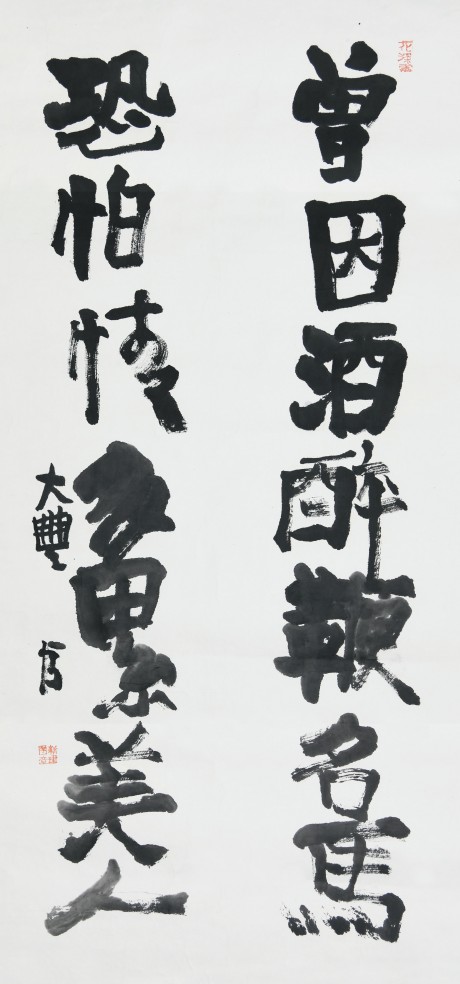 曾因酒醉鞭名馬
恐怕情多累美人
大豐